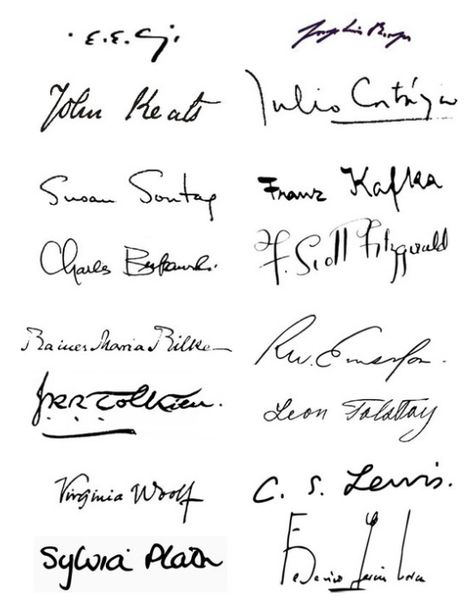 E. E. C
Jorge Luis Borges
John Keats
Julio Cortázar
Susan Sontag
Franz Kafka
Charles Bukowski.
F. Scott Fitzgerald
Rainer Maria Rilke
RW. Emerson.
JRR Tolkien.
Leon Tolstoy
Virginia Woolf
C. S. Lewis.
Sylvia Plath
Federico García Lorca